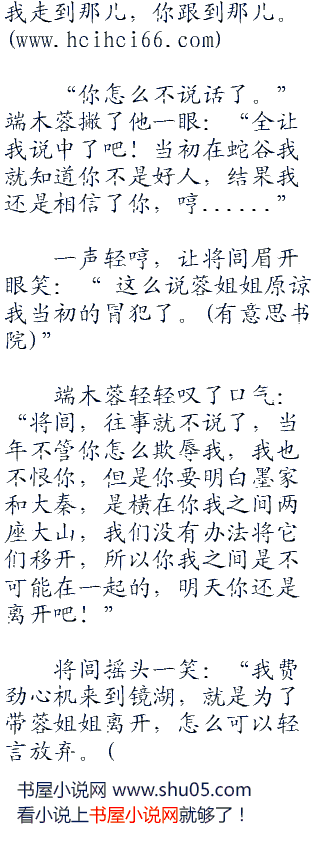 我走到那儿，你跟到那儿。
(www.hcihci66.com)
“你怎么不说话了。”
端木蓉撇了他一眼：“全让
我说中了吧！当初在蛇谷我
就知道你不是好人，结果我
还是相信了你，哼......”
一声轻哼，让将闾眉开
眼笑：“ 这么说蓉姐姐原谅
我当初的冒犯了。(有意思书
院)”
端木蓉轻轻叹了口气：
“将闾，往事就不说了，当
年不管你怎么欺辱我，我也
不恨你，但是你要明白墨家
和大秦，是横在你我之间两
座大山，我们没有办法将它
们移开，所以你我之间是不
可能在一起的，明天你还是
离开吧！”
将闾摇头一笑：“我费
劲心机来到镜湖，就是为了
带蓉姐姐离开，怎么可以轻
言放弃。(
书屋小说网 www.shu05.com
看小说上书屋小说网就够了！